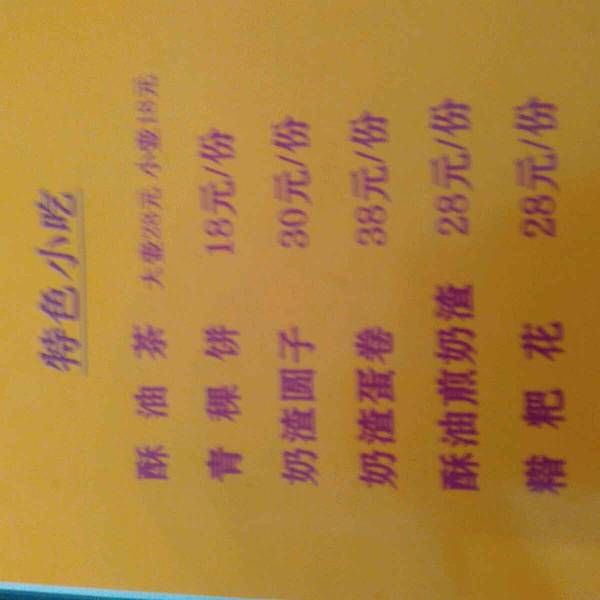 特色小吃
酥油茶 大壶28元 小壶18元
青稞饼 18元/份
奶渣圆子 30元/份
奶渣蛋卷 38元/份
酥油煎奶渣 28元/份
糌粑花 28元/份